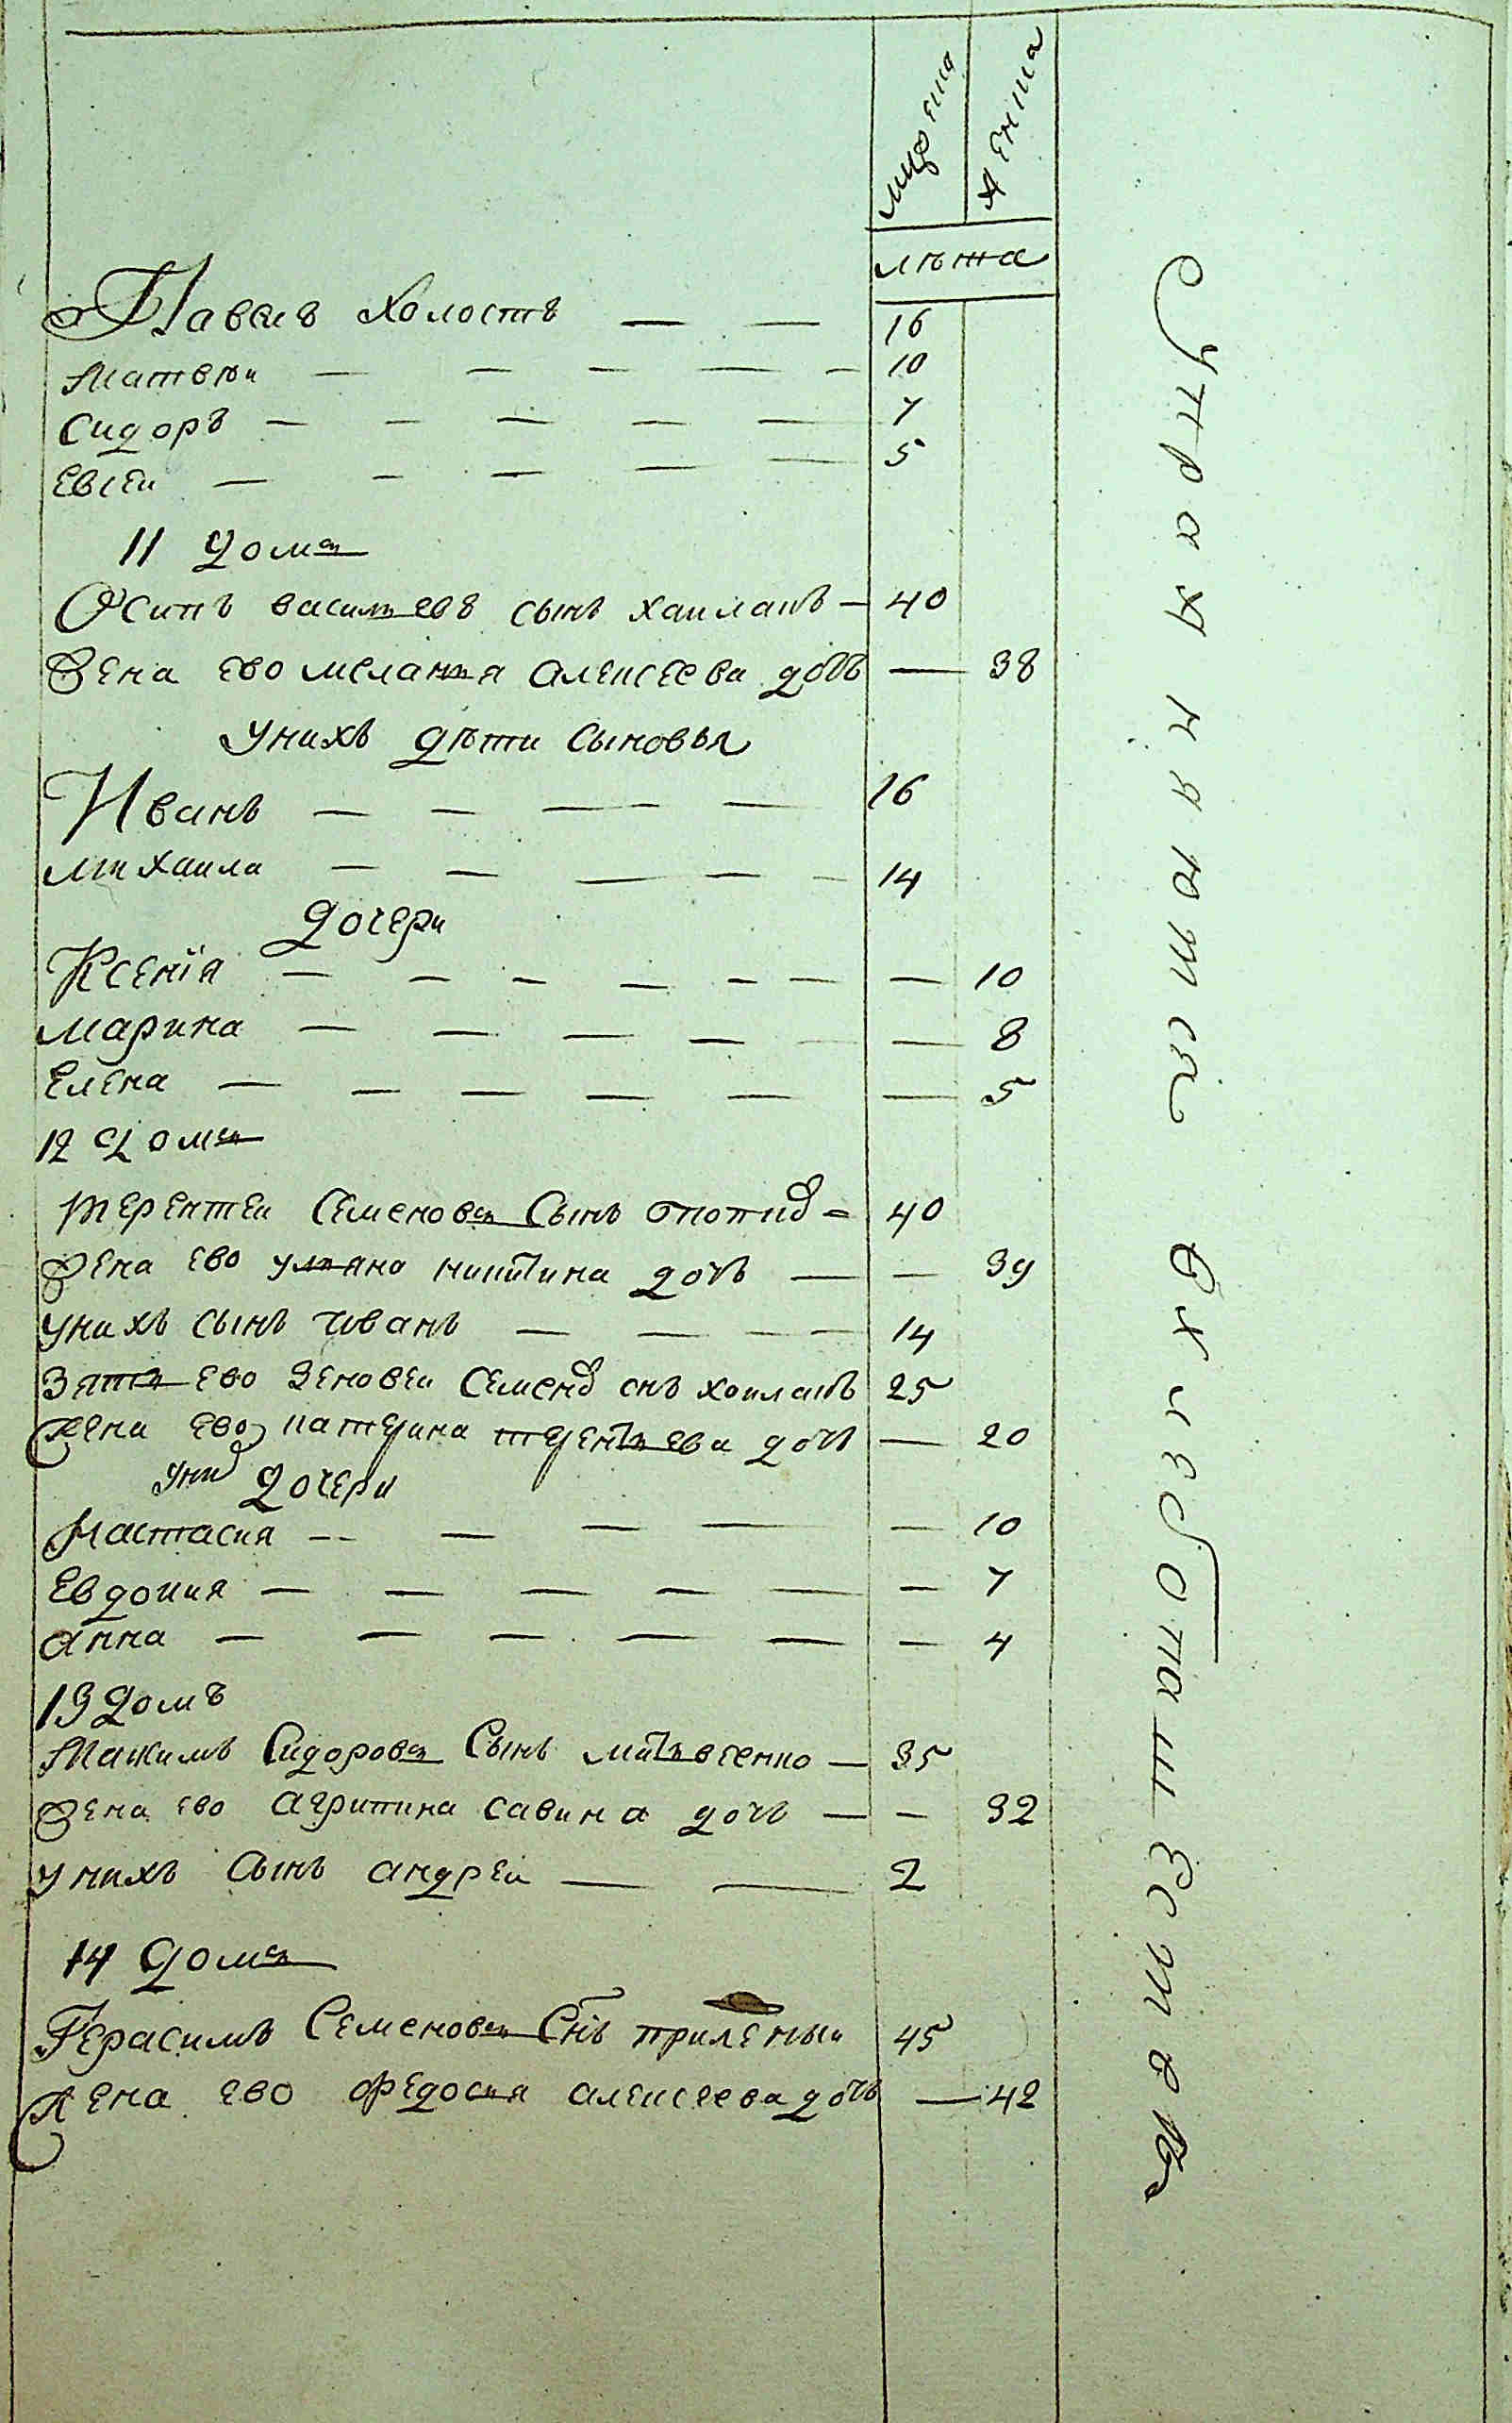 мужеска женска
лѣта
Павелъ холостъ — — 16
Матвѣи — — — — — 10
Сидоръ — — — — — 7
Евсеи — — — — — 5
11 домъ
Осипъ васильевъ сынъ хаилакъ — 40
Жена ево меланья алексеева дочь — 38
Унихъ дѣти сыновья
Иванъ — — — — 16
михаила — — — — — 14
дочери
Ксенїя — — — — — — — 10
марина — — — — — — 8
Елена — — — — — — 5
12 домъ
терентеи Семеновъ Сынъ 40
Жена ево ульяна никитина дочь — — 39
унихъ сынъ иванъ — — — — 14
Зять ево Зеновеи Семено снъ хаилакъ 25
Жена ево катерина терентьева дочь — 20
уних дочери
Настасия — — — — — 10
Евдокия — — — — — — 7
анна — — — — — — 4
13 домъ
Макимъ Сидоровъ Сынъ матьвеенко — 35
Жена ево агрипина савина дочь — — 32
унихъ Сынъ андреи — — 2
14 домъ
Герасимъ Семеновъ Снъ 45
Жена ево федосья алексеева дочь — 42